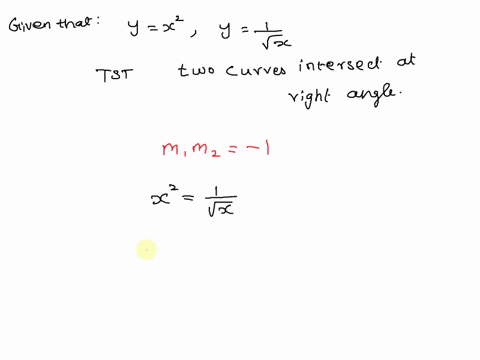 Given that: y = x², y = 1/√x
TST two curves intersect at
right angle.
m₁ m₂ = -1
x² = 1/√x